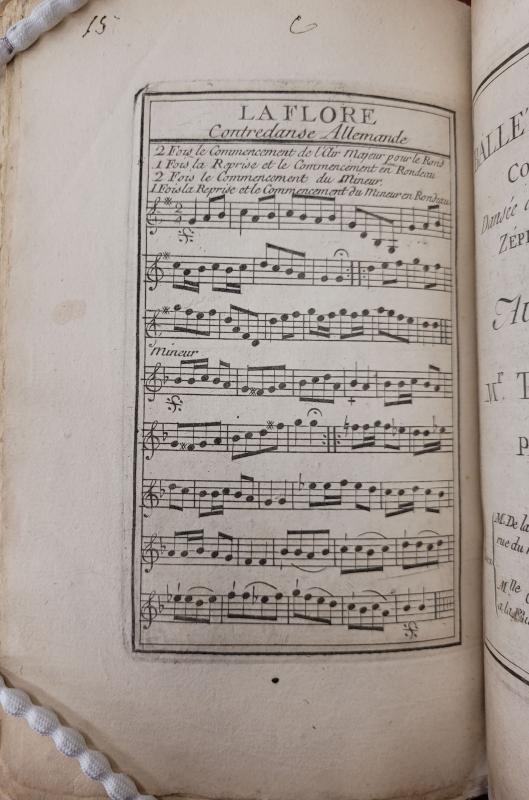 15 C
LA FLORE
Contredanse Allemande
2 Fois le Commencement de l'Air Majeur pour le Rond
1 Fois la Reprise et le Commencement en Rondeau
2 Fois le Commencement du Mineur.
1 Fois la Reprise et le Commencement du Mineur en Rondeau
2
4
mineur
BALLE
CO
Dansée
ZÉP
Au
Mr. T
P
M. De la
rue du
Mlle
a la